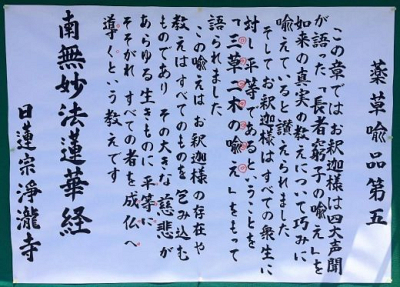 薬草喩品第五
この章ではお釈迦様は四大声聞
が語った「長者窮子の喩え」を
如来の真実の教えについて巧みに
喩えていると讃えられました
そしてお釈迦様はすべての衆生に
対し平等であるということを
「三草二木の喩え」をもって
語られました
この喩えはお釈迦様の存在や
教えはすべてのものを包み込む
ものであり その大きな慈悲が
あらゆる生きものに平等に
そそがれ すべての者を成仏へ
導くという教えです
南無妙法蓮華経
日蓮宗 淨瀧寺